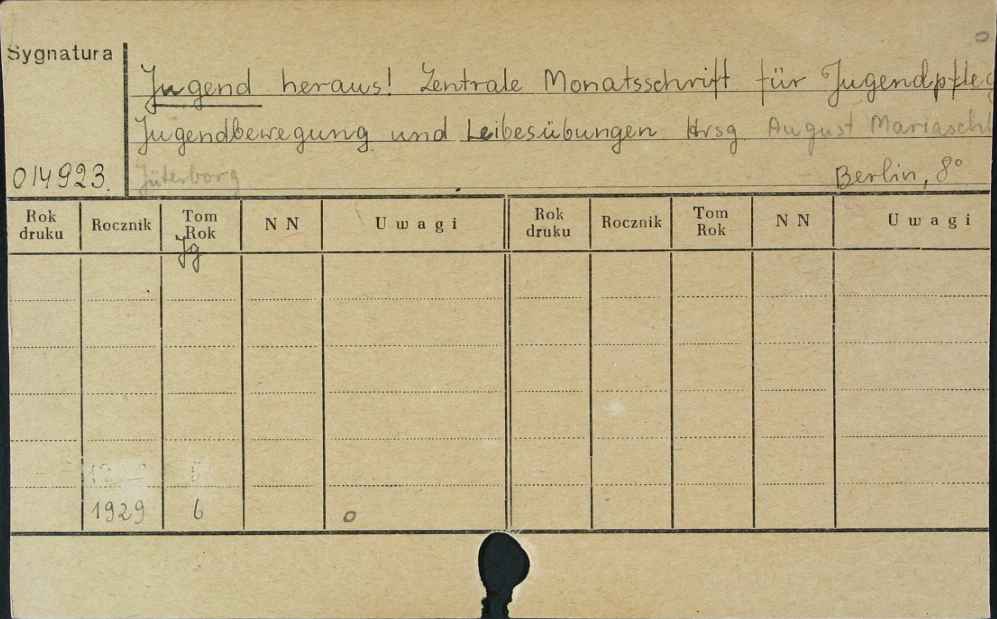 Sygnatura
Jugend heraus! Zentrale Monatsschrift für Jugendpfleg
Jugendbewegung und Leibesübungen Hrsg. August Mariaschl
014923. Jüterborg Berlin, 8°
Rok druku Rocznik Tom Rok N N Uwagi Rok druku Rocznik Tom Rok N N Uwagi
Jg
1929 6 o